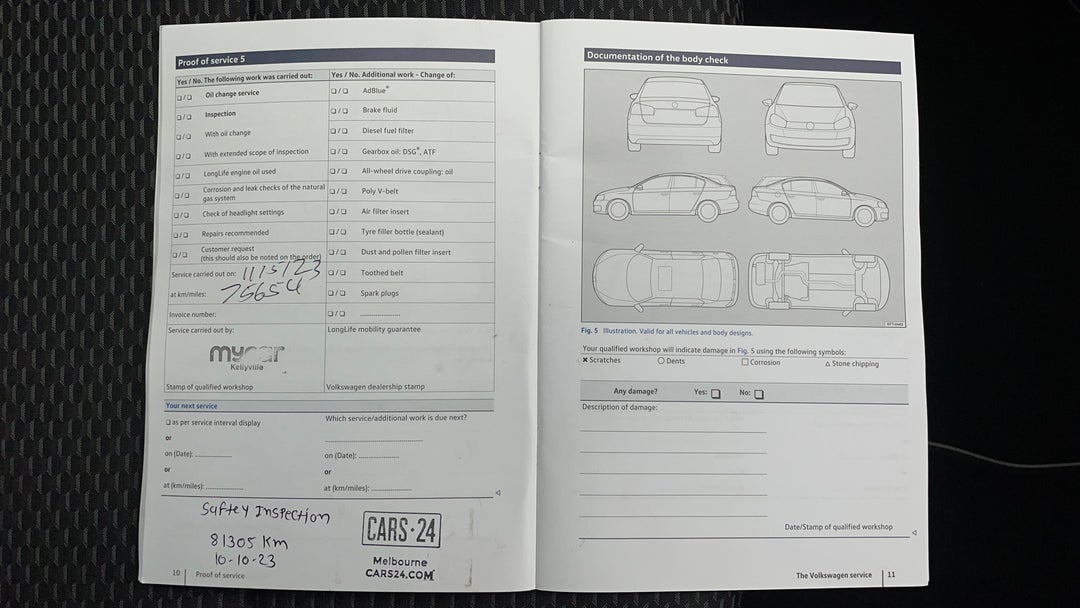 Proof of service 5
Yes / No. The following work was carried out:
❏ / ❏ Oil change service
❏ / ❏ Inspection
❏ / ❏ With oil change
❏ / ❏ With extended scope of inspection
❏ / ❏ LongLife engine oil used
❏ / ❏ Corrosion and leak checks of the natural
gas system
❏ / ❏ Check of headlight settings
❏ / ❏ Repairs recommended
❏ / ❏ Customer request
(this should also be noted on the order)
Service carried out on: 11/5/23
at km/miles: 75654
Invoice number:
Service carried out by:
mycar
Kellyville
Stamp of qualified workshop
Yes / No. Additional work - Change of:
❏ / ❏ AdBlue®
❏ / ❏ Brake fluid
❏ / ❏ Diesel fuel filter
❏ / ❏ Gearbox oil: DSG®, ATF
❏ / ❏ All-wheel drive coupling: oil
❏ / ❏ Poly V-belt
❏ / ❏ Air filter insert
❏ / ❏ Tyre filler bottle (sealant)
❏ / ❏ Dust and pollen filter insert
❏ / ❏ Toothed belt
❏ / ❏ Spark plugs
❏ / ❏ ....................
LongLife mobility guarantee
Volkswagen dealership stamp
Your next service
❏ as per service interval display
or
on (Date): ..................
or
at (km/miles): ..................
Which service/additional work is due next?
..............................................
on (Date): ...................
or
at (km/miles): ...................
Saftey Inspection
81305 Km
10-10-23
CARS·24
Melbourne
CARS24.COM
10 Proof of service
Documentation of the body check
Fig. 5 Illustration. Valid for all vehicles and body designs.
Your qualified workshop will indicate damage in Fig. 5 using the following symbols:
✖ Scratches ○ Dents □ Corrosion △ Stone chipping
Any damage? Yes: ❏ No: ❏
Description of damage:
Date/Stamp of qualified workshop
The Volkswagen service 11